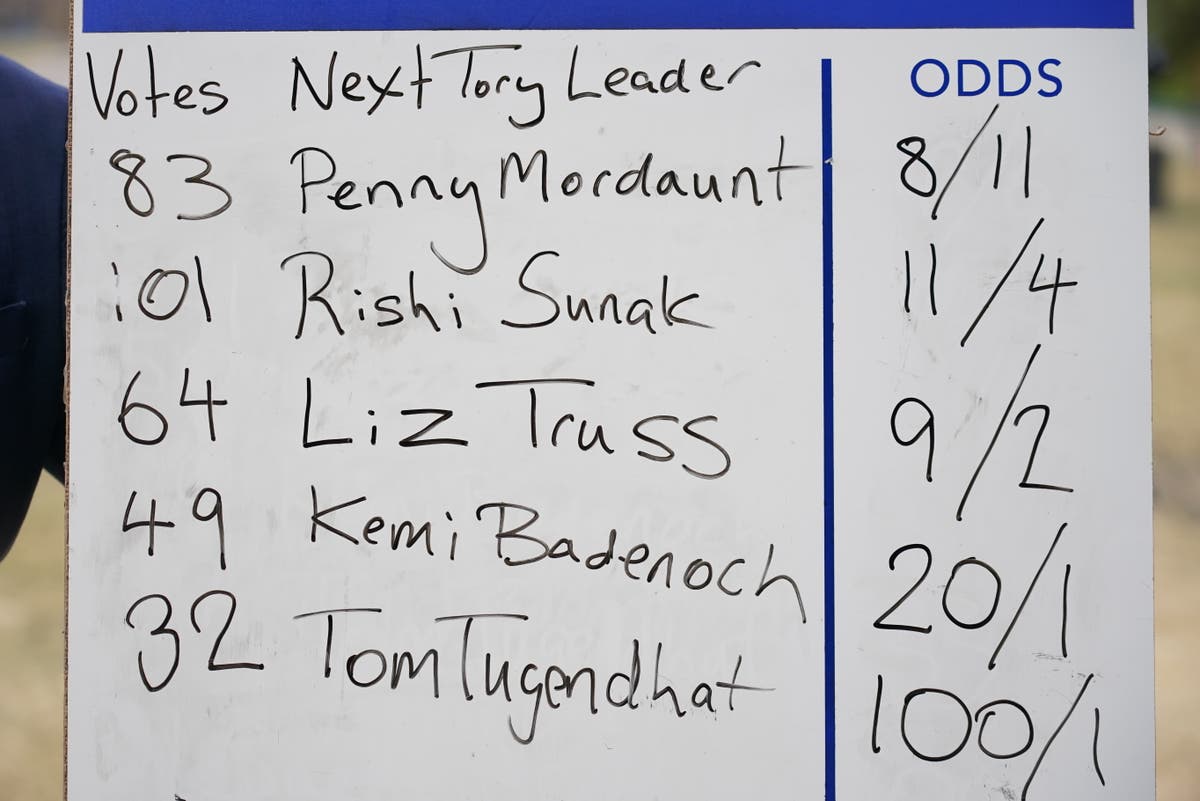 Votes Next Tory Leader ODDS
83 Penny Mordaunt 8/11
101 Rishi Sunak 11/4
64 Liz Truss 9/2
49 Kemi Badenoch 20/1
32 Tom Tugendhat 100/1